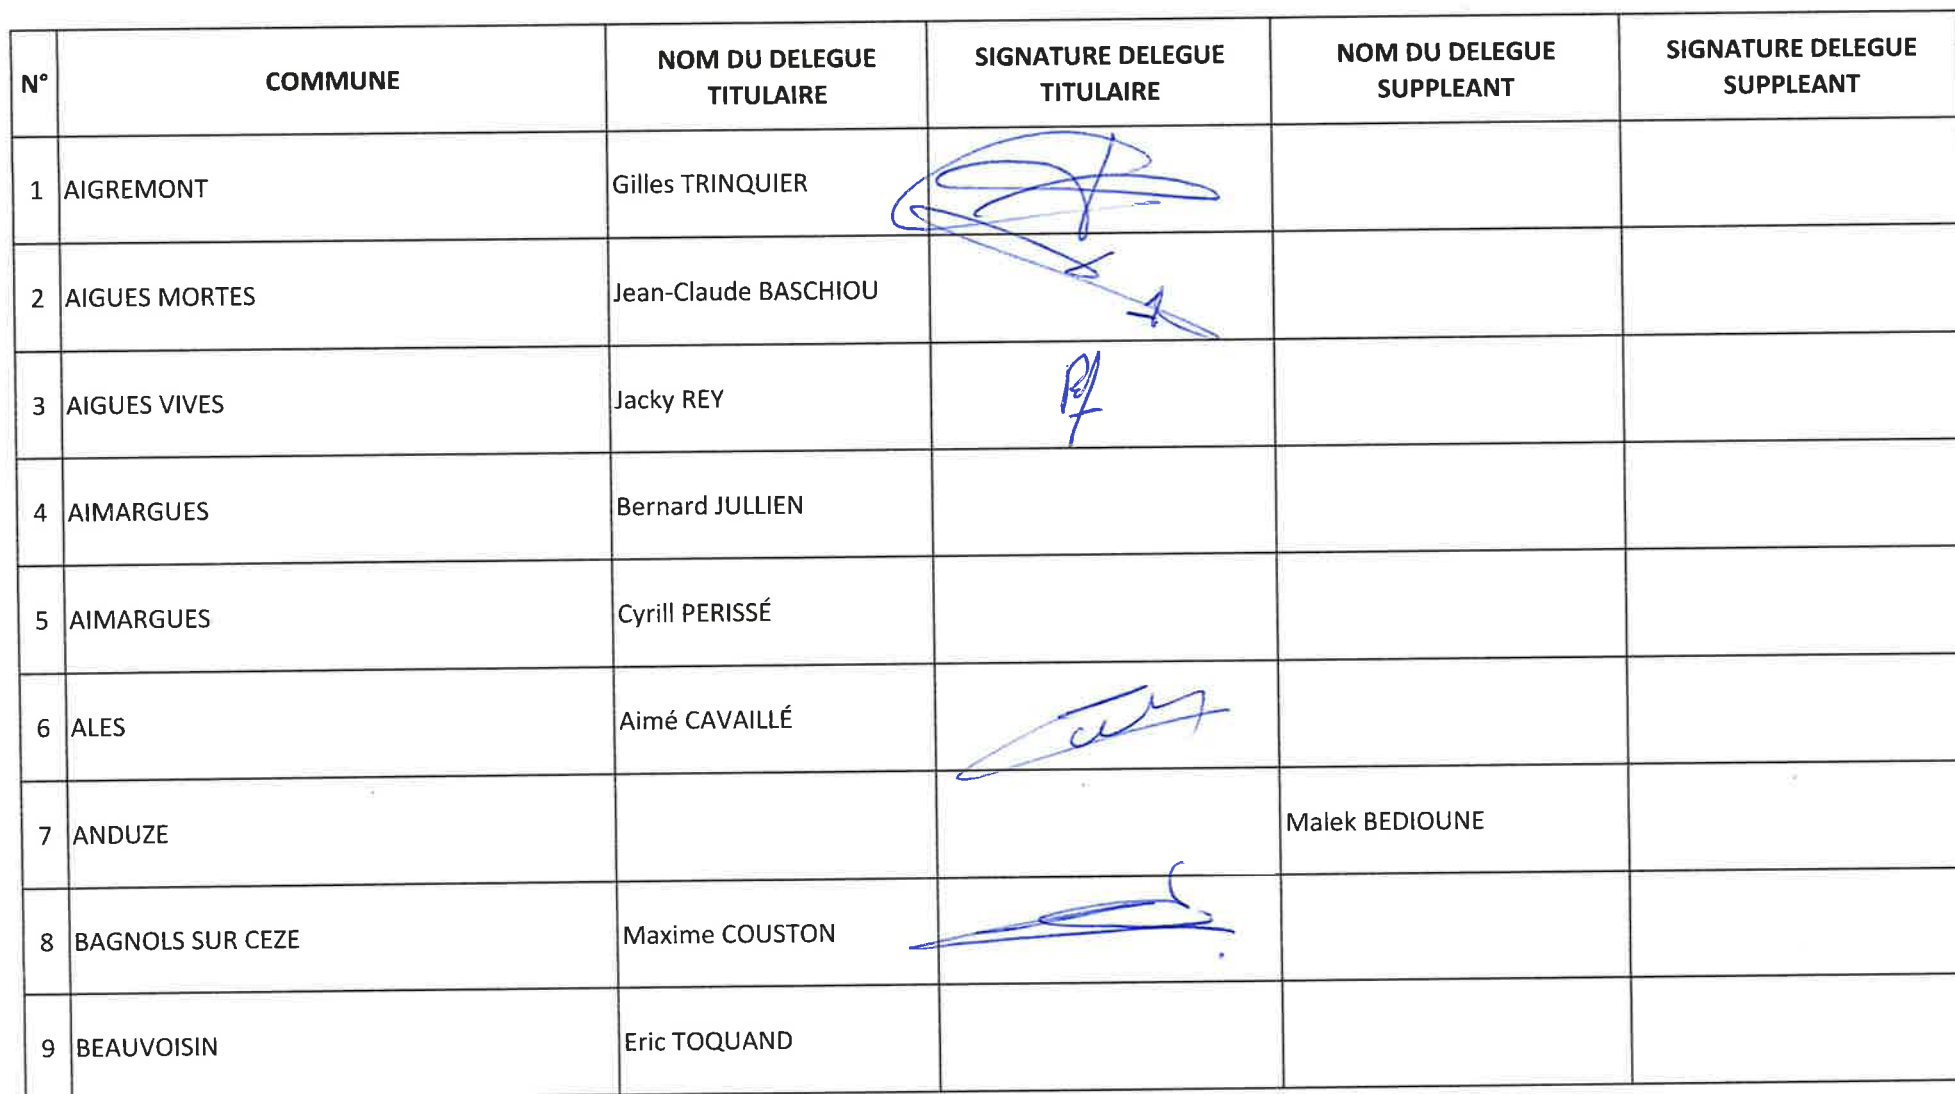 N°
COMMUNE
NOM DU DELEGUE
TITULAIRE
SIGNATURE DELEGUE
TITULAIRE
NOM DU DELEGUE
SUPPLEANT
SIGNATURE DELEGUE
SUPPLEANT
1 AIGREMONT Gilles TRINQUIER
2 AIGUES MORTES Jean-Claude BASCHIOU
3 AIGUES VIVES Jacky REY
4 AIMARGUES Bernard JULLIEN
5 AIMARGUES Cyrill PERISSÉ
6 ALES Aimé CAVAILLÉ
7 ANDUZE Malek BEDIOUNE
8 BAGNOLS SUR CEZE Maxime COUSTON
9 BEAUVOISIN Eric TOQUAND